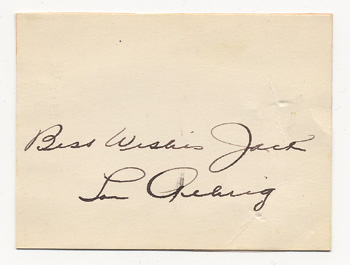 Best Wishes Jack
Lou Gehrig